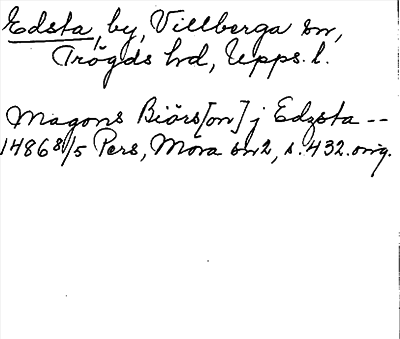 Edsta, by, Villberga sn,
Trögds hd, Upps. l.
Magons Biörs[on] j Edzsta --
1486 8/5 Pers, Mora sn 2, s. 432. orig.